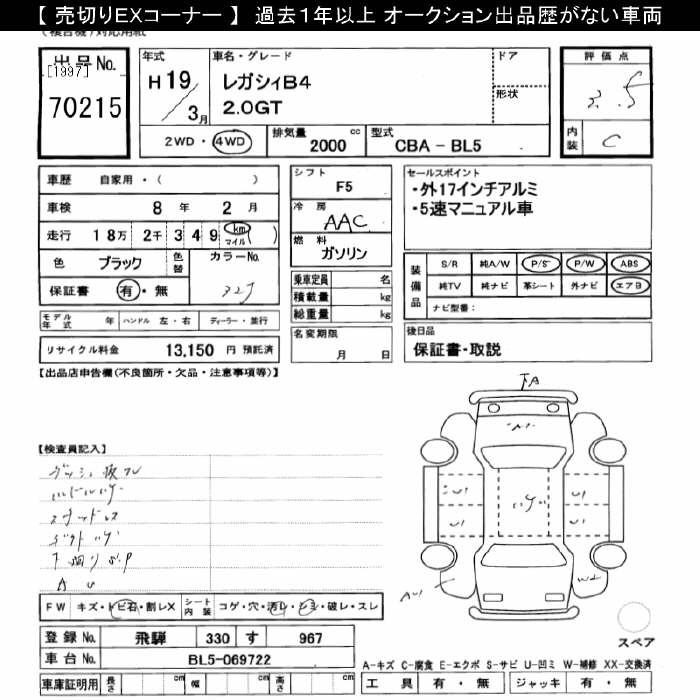 【 売切りEXコーナー 】 過去１年以上 オークション出品歴がない車両
出品No.
[1997]
70215
年式
H 19
3月
車名・グレード
レガシィB4
2.0GT
ドア
形状
2WD・4WD
排気量 2000 cc
型式 CBA－BL5
評価点
3.5
内装 C
車歴 自家用・( )
車検 8 年 2 月
走行 18万 2千 3 4 9 km マイル ( )
色 ブラック 色替 カラーNo.
保証書 有・無 32J
モデル年式 年 ハンドル 左・右 ディーラー・並行
リサイクル料金 13,150 円 預託済
シフト F5
冷房 AAC
燃料 ガソリン
乗車定員 名
積載量 kg
総重量 kg
名変期限 月 日
セールスポイント
・外17インチアルミ
・5速マニュアル車
装備品
S/R 純A/W P/S P/W ABS
純TV 純ナビ 革シート 外ナビ エアB
ナビ型番：
後日品
保証書・取説
【出品店申告欄(不良箇所・欠品・注意事項等)】
【検査員記入】
A U
FW キズ・トビ石・割レX シート内装 コゲ・穴・汚レ・シミ・破レ・スレ
登録No. 飛騨 330 す 967
車台No. BL5-069722
車庫証明用 長さ cm 幅 cm 高さ cm
スペア
A-キズ C-腐食 E-エクボ S-サビ U-凹ミ W-補修 XX-交換済
工具 有・無 ジャッキ 有・無